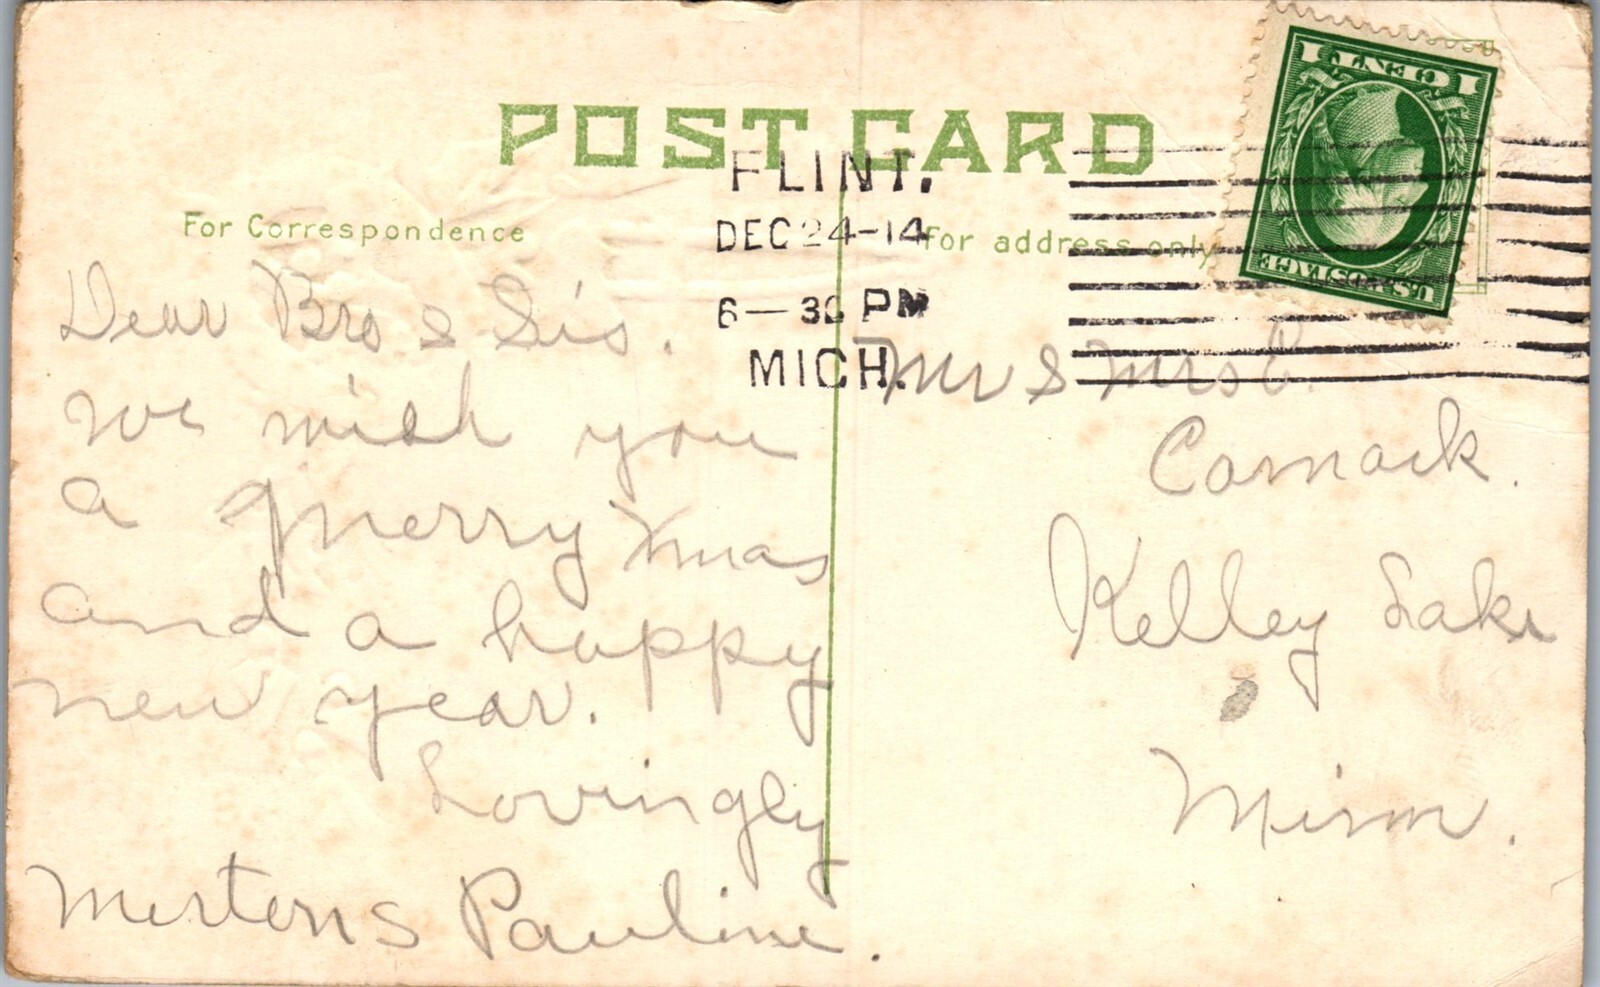 POST CARD
1 CENT 1
U.S. POSTAGE
FLINT.
DEC 24-14
6-30 PM
MICH.
For Correspondence
For address only
Dear Bro & Sis.
we wish you
a Merry Xmas
and a happy
new year.
Lovingly
Merton & Pauline.
Mr & Mrs C.
Comack.
Kelley Lake
Minn.